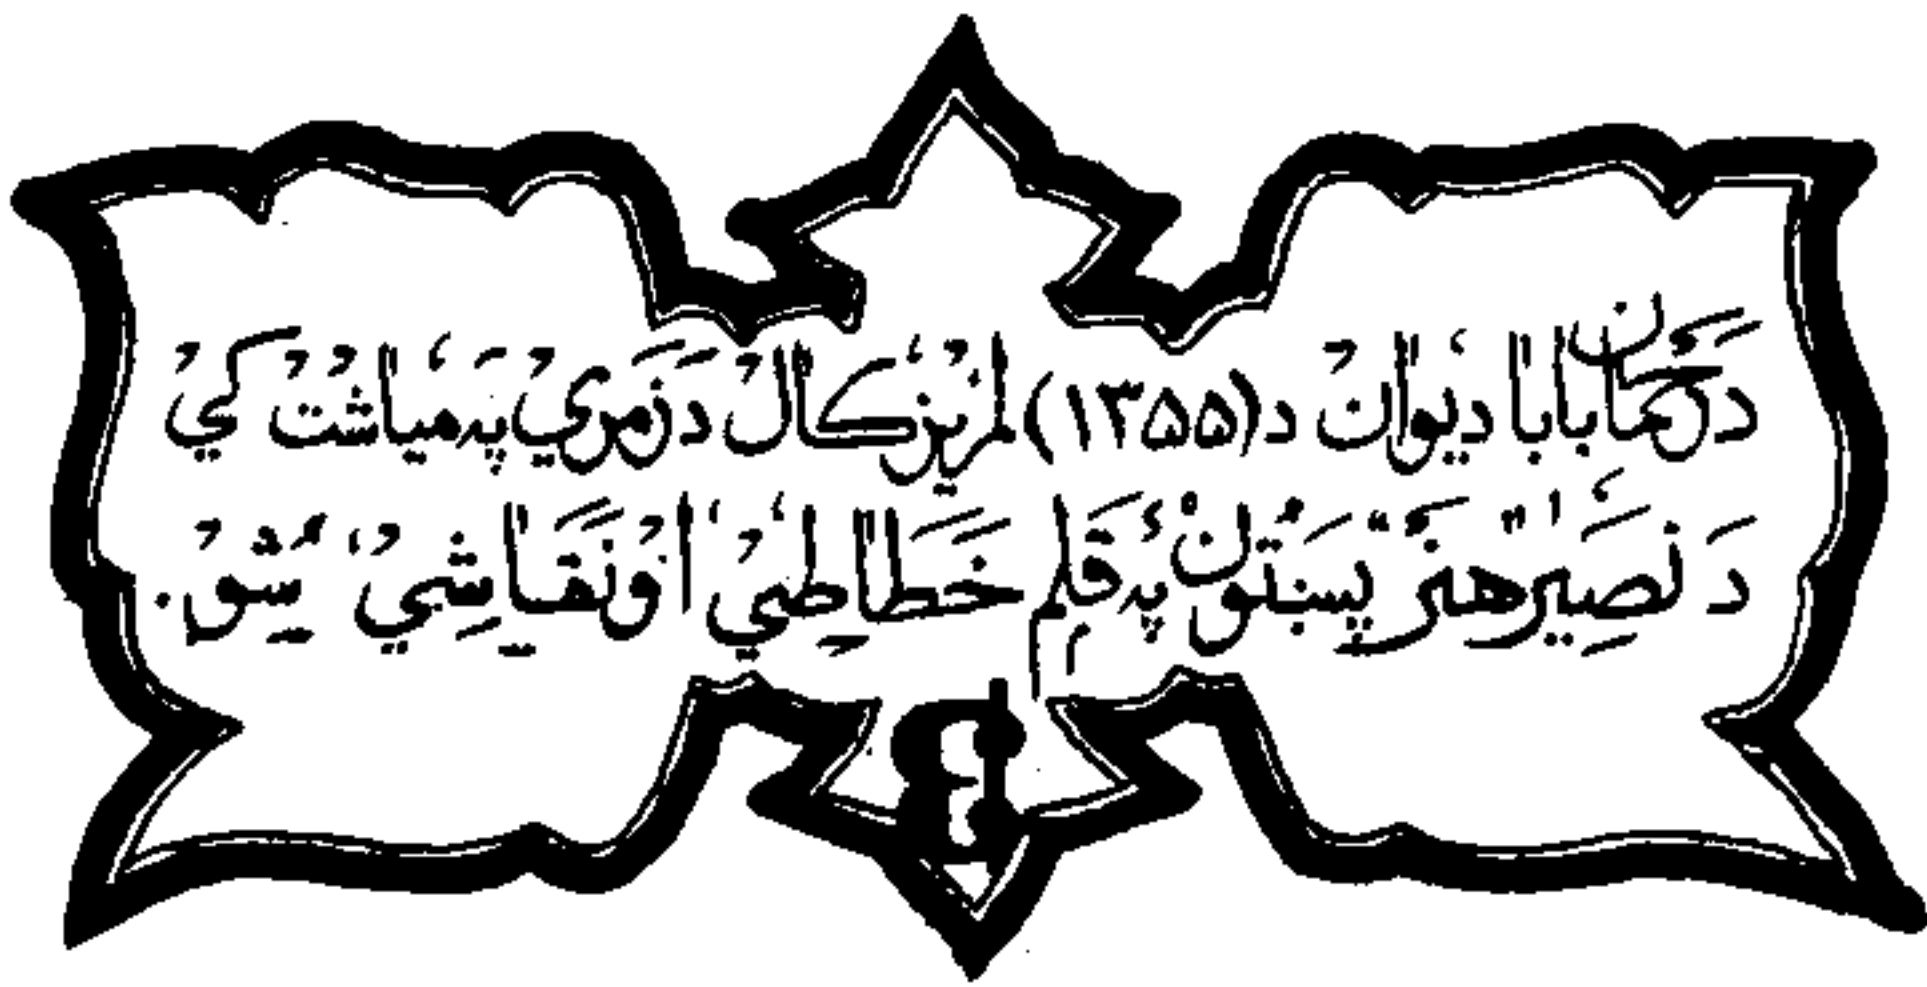 د رحمان بابا ديوان د (۱۳۵۵) لمريز کال د زمري په مياشت کي
د نصير هنر پښتون په قلم خطاطي او نقاشي شو.